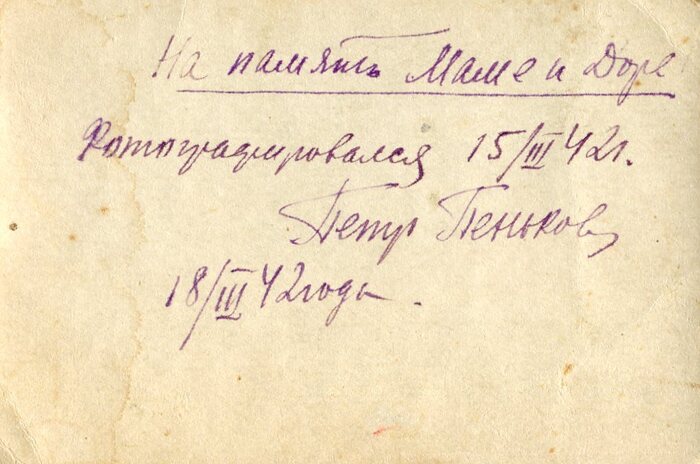 На память Маме и Доре
Фотографировался 15/III 42г.
Петр Пеньков
18/III 42 года.